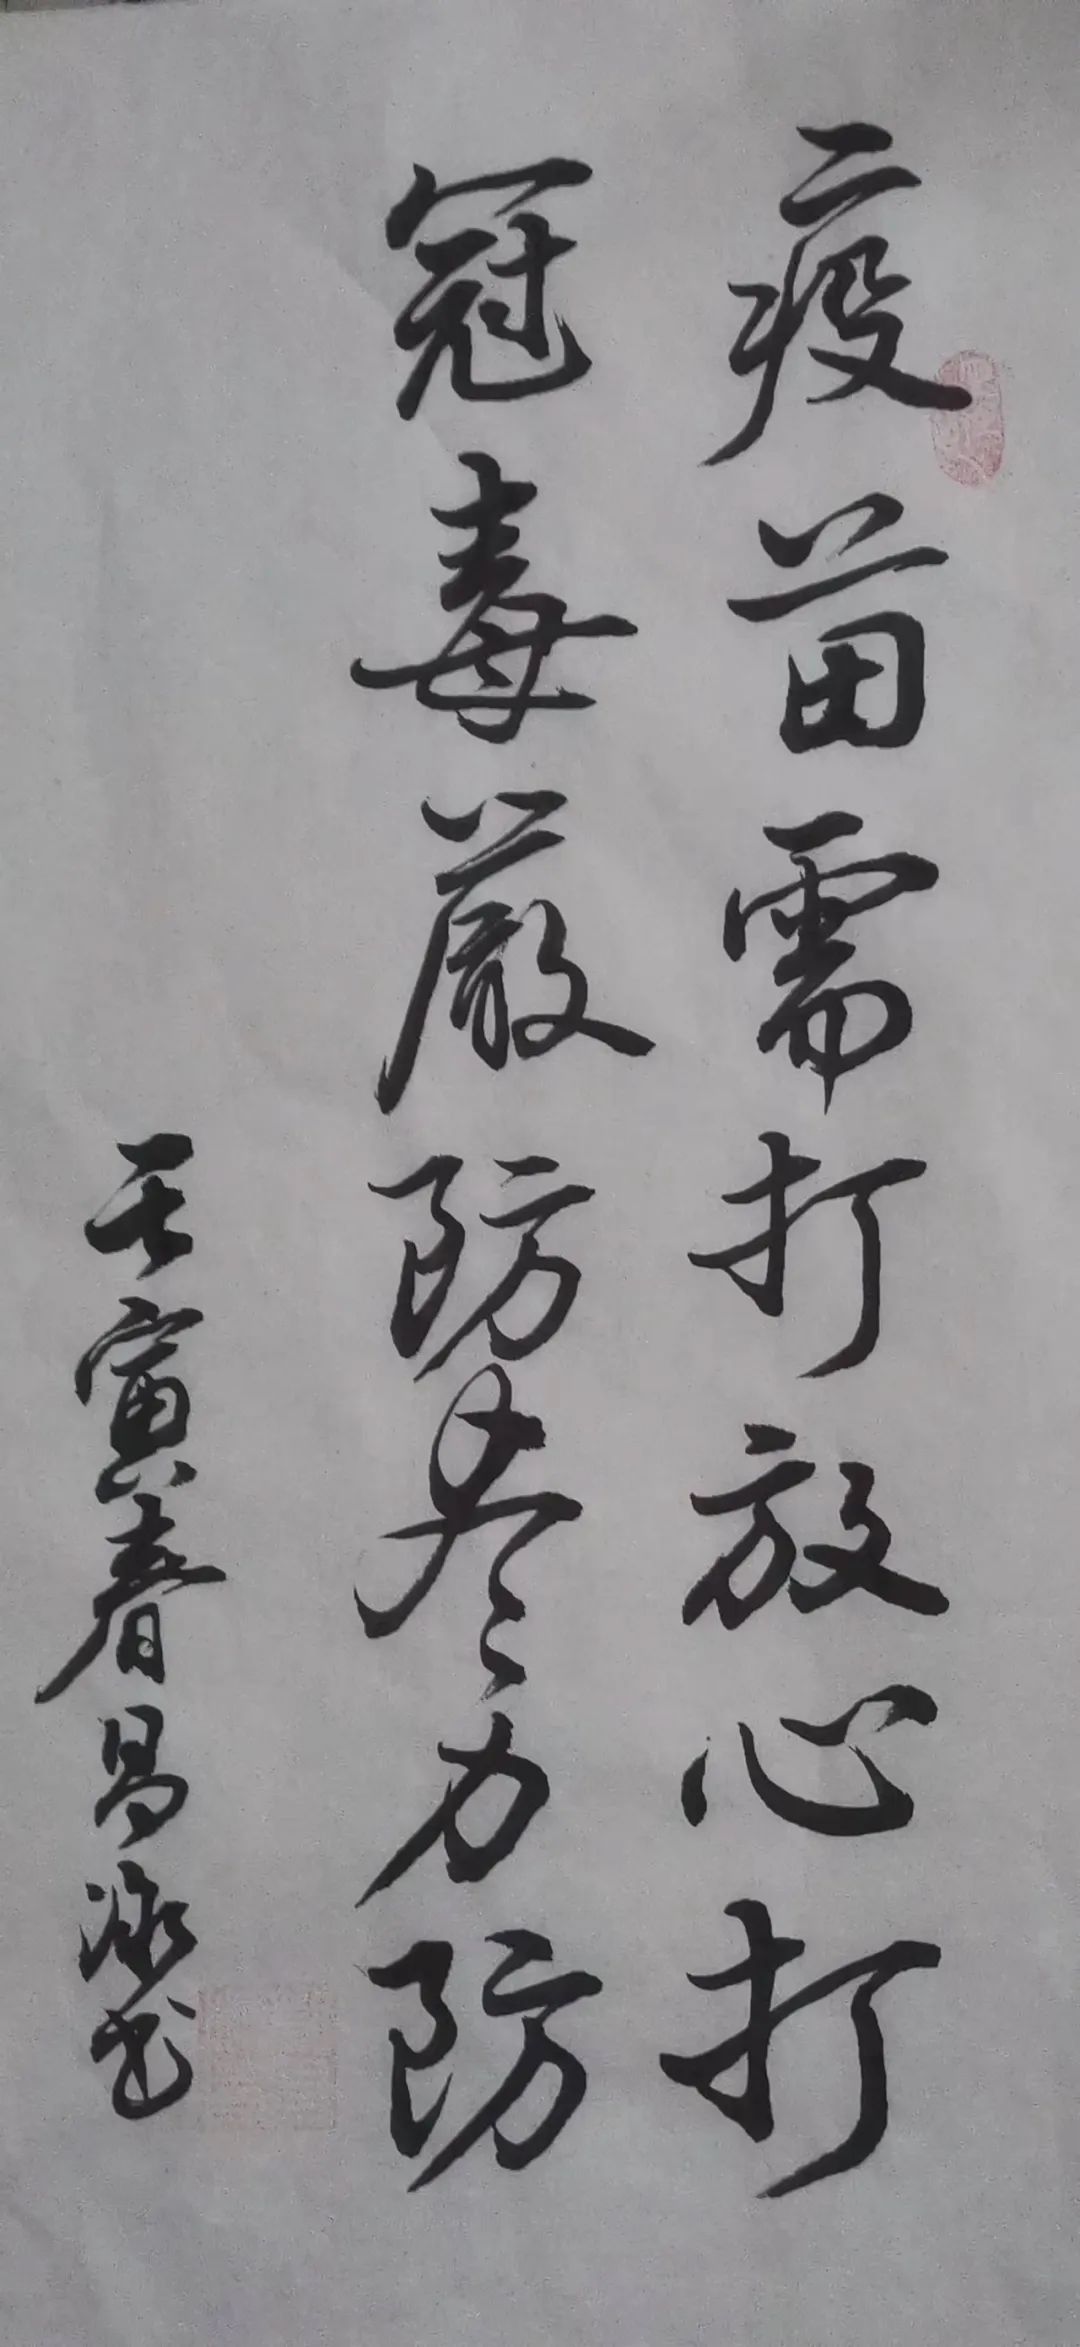 疫苗需打放心打
冠毒嚴防尽力防
壬寅春昌泳书